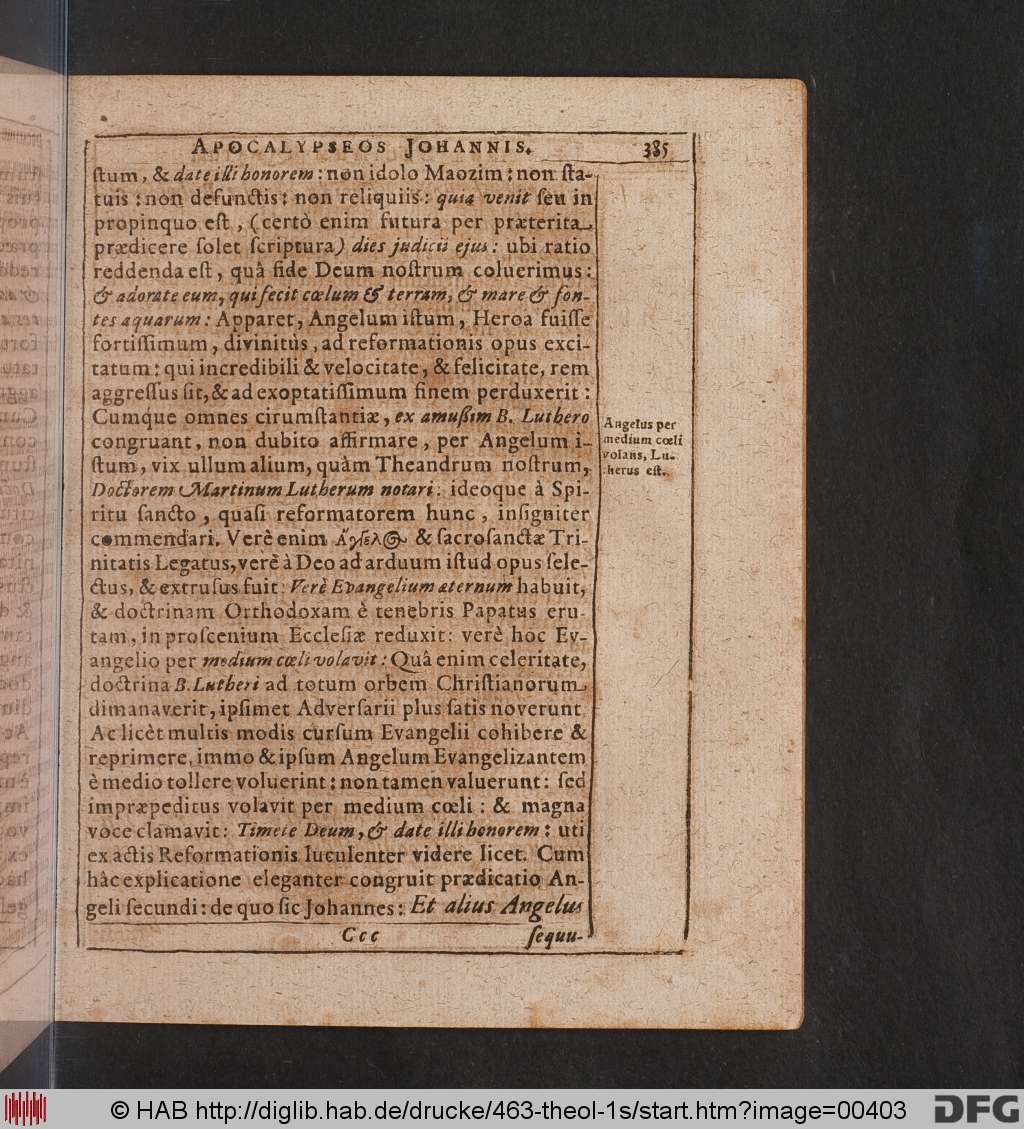 APOCALYPSEOS JOHANNIS. 385
ſtum, & date illi honorem: non idolo Maozim: non ſta-
tuis: non defunctis: non reliquiis: quia venit ſeu in
propinquo eſt, (certò enim futura per præterita
prædicere ſolet ſcriptura) dies judicii ejus: ubi ratio
reddenda eſt, quâ fide Deum noſtrum coluerimus:
& adorate eum, qui fecit cœlum & terram, & mare & fon-
tes aquarum: Apparet, Angelum iſtum, Heroa fuiſſe
fortiſſimum, divinitùs, ad reformationis opus exci-
tatum: qui incredibili & velocitate, & felicitate, rem
aggreſſus ſit, & ad exoptatiſſimum finem perduxerit:
Cumque omnes cirumſtantiæ, ex amußim B. Luthero
congruant, non dubito affirmare, per Angelum i-
ſtum, vix ullum alium, quàm Theandrum noſtrum,
Doctorem Martinum Lutherum notari: ideoque à Spi-
ritu ſancto, quaſi reformatorem hunc, inſigniter
commendari. Verè enim Ἄγγελος & ſacroſanctæ Tri-
nitatis Legatus, verè à Deo ad arduum iſtud opus ſele-
ctus, & extruſus fuit: Verè Evangelium æternum habuit,
& doctrinam Orthodoxam è tenebris Papatus eru-
tam, in proſcenium Eccleſiæ reduxit: verè hoc Ev-
angelio per medium cœli volavit: Quâ enim celeritate,
doctrina B. Lutheri ad totum orbem Chriſtianorum
dimanaverit, ipſimet Adverſarii plus ſatis noverunt
Ac licèt multis modis curſum Evangelii cohibere &
reprimere, immo & ipſum Angelum Evangelizantem
è medio tollere voluerint: non tamen valuerunt: ſed
impræpeditus volavit per medium cœli: & magna
voce clamavit: Timete Deum, & date illi honorem: uti
ex actis Reformationis luculenter videre licet. Cum
hâc explicatione eleganter congruit prædicatio An-
geli ſecundi: de quo ſic Johannes: Et alius Angelus
Ccc ſequu-
Angelus per
medium cœli
volans, Lu-
therus eſt.
© HAB http://diglib.hab.de/drucke/463-theol-1s/start.htm?image=00403 DFG